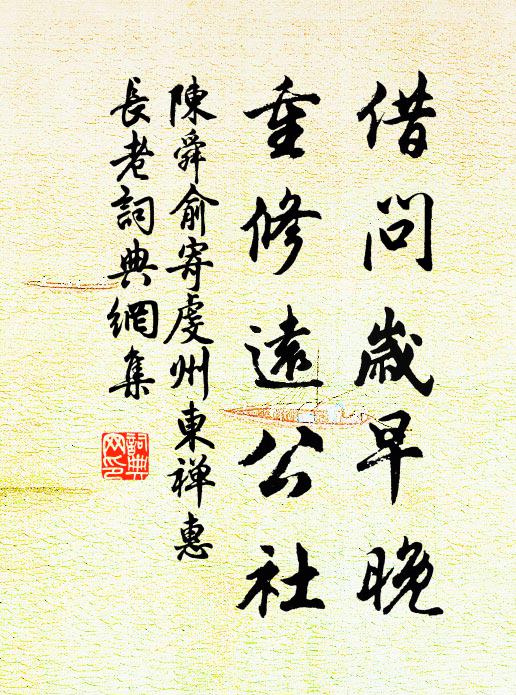 借問歲早晚
重修遠公社
陳舜俞寄虔州東禪惠
長老詞典網集
詞典網印